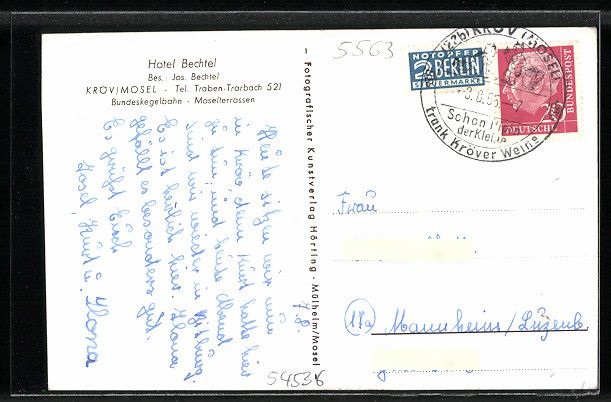 Hotel Bechtel
Bes. Jas. Bechtel
KRÖV/MOSEL · Tel. Traben-Trarbach 521
Bundeskegelbahn · Moselterrassen
7.8.
Heute sitzen wir nun
in Kröv, denn Kurt hatte hier
zu tun; und heute Abend
sind wir wieder in Bitburg.
Es ist herrlich hier. Ilona
gefällt es besonders gut.
Es grüßt Euch
Josef, Kurt u. Ilona
– Fotografischer Kunstverlag Hörting · Mülheim/Mosel
5563
NOTOPFER
2 BERLIN
STEUERMARKE
(22b) KRÖV (MOSEL)
8.55
Schon
der
trank Kröver Wein
DEUTSCHE
BUNDESPOST
20
Frau
17a Mannheim/Luzenb.
54536